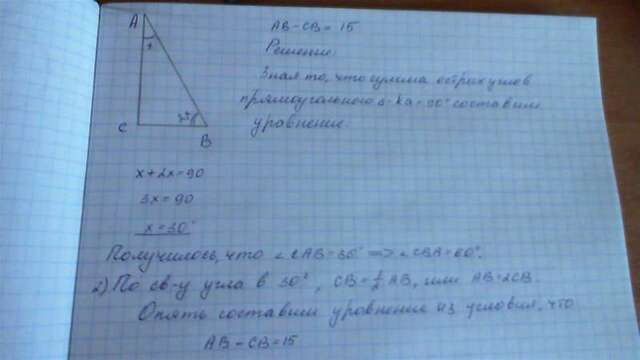 A
x
C
2x
B
AB - CB = 15
Решение:
Зная то, что сумма острых углов
прямоугольного Δ-ка = 90° составим
уравнение:
x + 2x = 90
3x = 90
x = 30°
Получилось, что ∠CAB = 30° => ∠CBA = 60°.
2) По св-у угла в 30°, CB = ½ AB, или AB = 2CB.
Опять составим уравнение из условия, что
AB - CB = 15